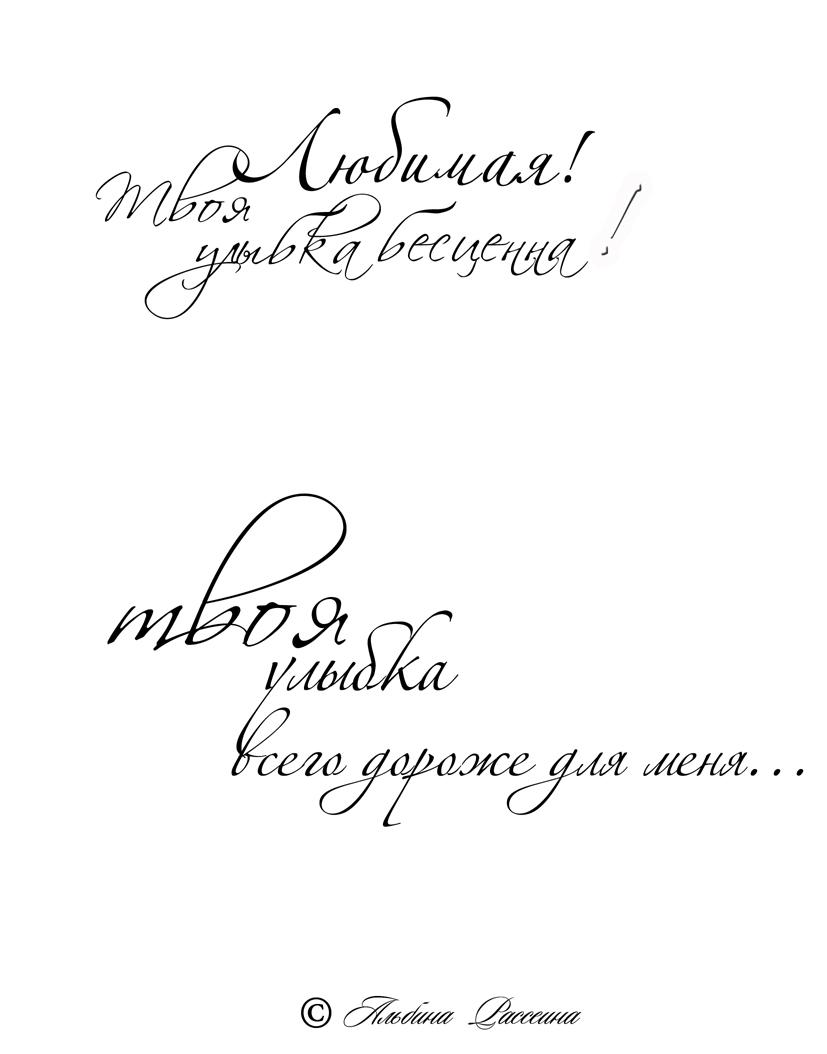 Любимая!
Твоя
улыбка бесценна!
твоя
улыбка
всего дороже для меня...
© Альбина Рассеина